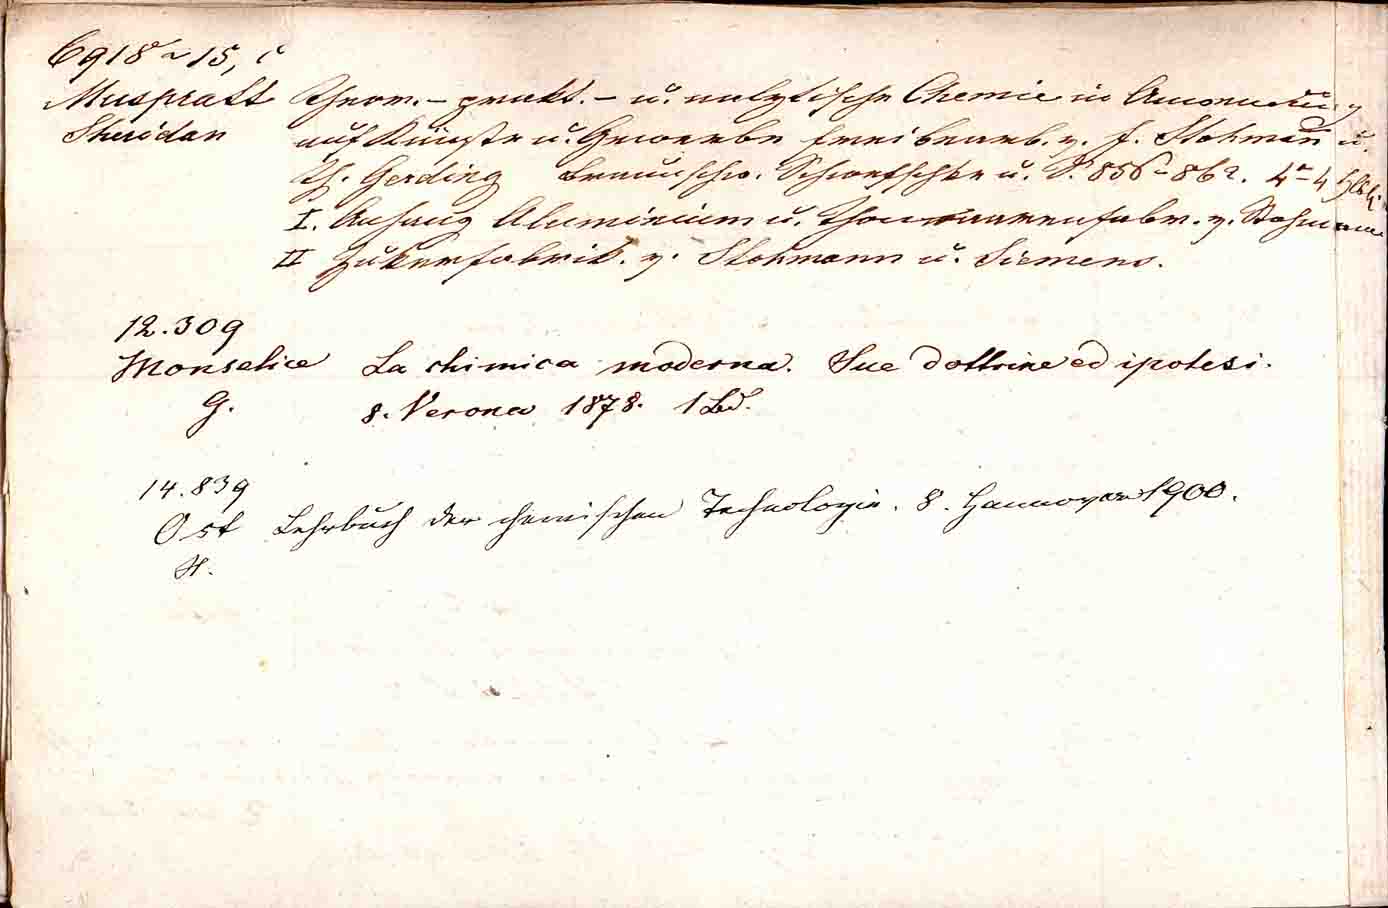 6918 - 15, c
Muspratt Theor. - prakt. - u. analytische Chemie in Anwendung
Sheridan auf Künste u. Gewerbe frei bearb. v. F. Stohmann u.
Th. Gerding Braunschw. Schwetschke u. S. 856-862. 4° 4
I. Anhang Aluminium u. Thonwaarenfabr. v. Stohmann
II Zukerfabrik. v. Stohmann u. Siemens.
12.309
Monselice La chimica moderna. Sue dottrine ed ipotesi.
G. 8. Verona 1878. 1 Bd.
14.839
Ost Lehrbuch der chemischen Technologie. 8. Hannover 1900.
H.